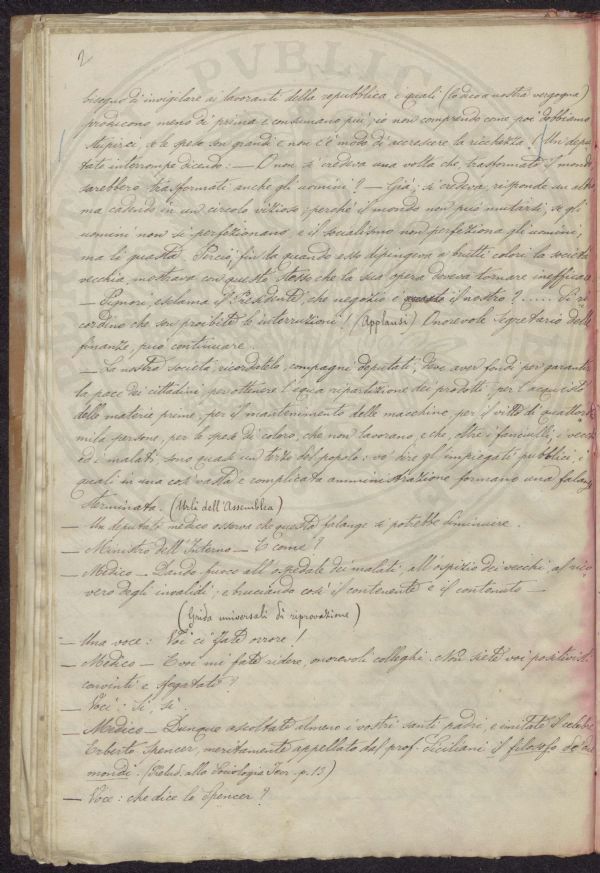 2
bisogno di invigilare ai lavoranti della repubblica, i quali (lo dico a nostra vergogna)
producono meno di prima e consumano più; io non comprendo come poi dobbiamo
stupirci, se le spese son grandi e non c'è modo di accrescere la ricchezza! Un depu
tato interrompe dicendo: — O non si credeva una volta che, trasformato il mondo
sarebbero trasformati anche gli uomini? — Già; si credeva, risponde un altro
ma cadendo in un circolo vizioso; perché il mondo non può mutarsi, se gli
uomini non si perfezionano, e il socialismo non perfeziona gli uomini,
ma li guasta. Perciò, fin da quando esso dipingeva a brutti colori la società
vecchia, mostrava con questo stesso che la sua opera doveva tornare inefficace
— Signori, esclama il Presidente, che negozio è questo il nostro? ..... Si ri
cordino che son proibite le interruzioni! (Applausi) Onorevole segretario delle
finanze, può continuare.
— La nostra società, ricordatelo, compagni deputati, deve aver fondi per garantire
la pace dei cittadini, per ottenere l'equa ripartizione dei prodotti, per l'acquisto
delle materie prime, per il mantenimento delle macchine, per il vitto di quattordi
mila persone, per le spese di coloro, che non lavorano, e che, oltre i fanciulli, i vecchi
ed i malati, sono quasi un terzo del popolo; vo' dire gl'impiegati pubblici, i
quali in una così vasta e complicata amministrazione formano una falange
sterminata. (Urli dell'Assemblea)
— Un deputato medico osserva che questa falange si potrebbe diminuire.
— Ministro dell'Interno — E come?
— Medico — Dando fuoco all'ospedale dei malati, all'ospizio dei vecchi, al rico
vero degli invalidi; e bruciando così il contenente e il contenuto —
(Grida universali di riprovazione)
— Una voce: Voi ci fate orrore!
— Medico — E voi mi fate ridere, onorevoli colleghi. Non siete voi positivisti
convinti e sfegatati?
— Voci: Sì, sì.
— Medico — Dunque ascoltate almeno i vostri santi padri, e imitate il celebre
Erberto Spencer, meritamente appellato dal prof. Siciliani il filosofo de' due
mondi. (Prelud. alla Sociologia Teor. p. 13)
— Voce: che dice lo Spencer?